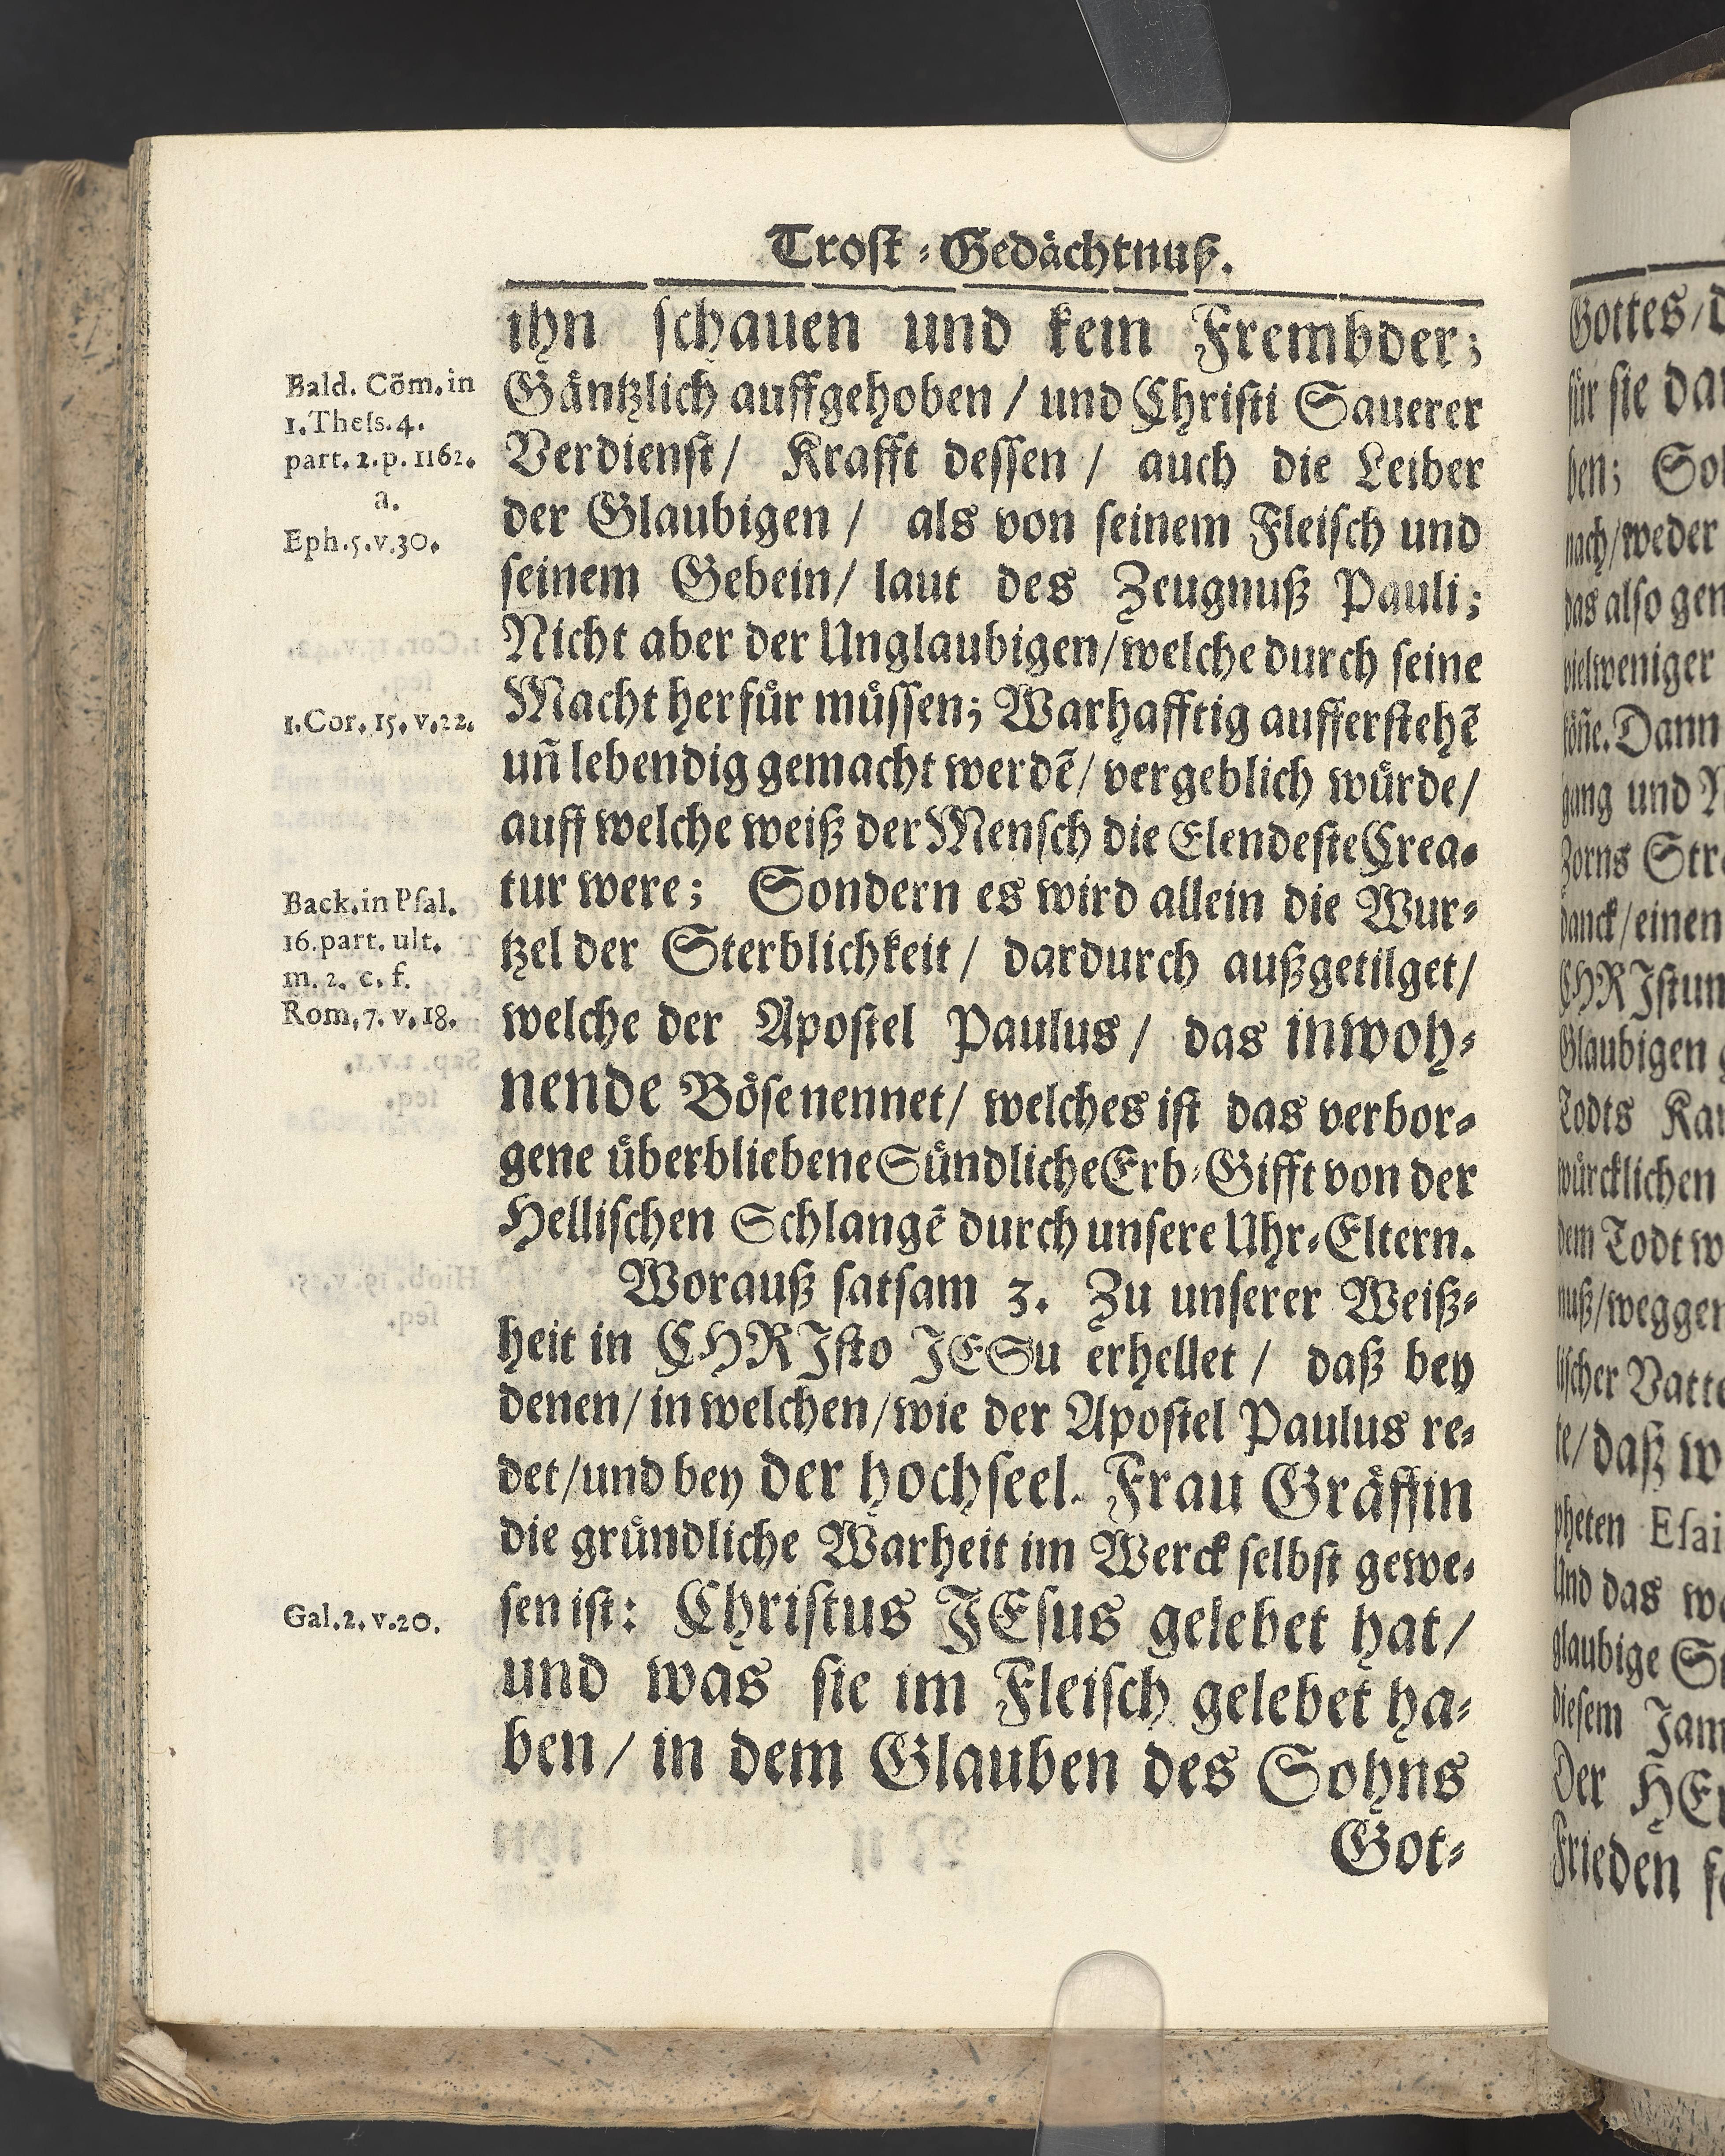 Trost-Gedächtnuß.
ihn schauen und kein Frembder;
Gäntzlich auffgehoben / und Christi Sauerer
Verdienst / Krafft dessen / auch die Leiber
der Glaubigen / als von seinem Fleisch und
seinem Gebein / laut des Zeugnuß Pauli;
Nicht aber der Unglaubigen / welche durch seine
Macht herfür müssen; Warhafftig aufferstehẽ
uñ lebendig gemacht werdẽ / vergeblich würde /
auff welche weiß der Mensch die Elendeste Crea-
tur were; Sondern es wird allein die Wur-
tzel der Sterblichkeit / dardurch außgetilget /
welche der Apostel Paulus / das inwoh-
nende Böse nennet / welches ist das verbor-
gene überbliebene Sündliche Erb-Gifft von der
Hellischen Schlangẽ durch unsere Uhr-Eltern.
Worauß satsam 3. Zu unserer Weiß-
heit in CHRIsto JESu erhellet / daß bey
denen / in welchen / wie der Apostel Paulus re-
det / und bey der hochseel. Frau Gräffin
die gründliche Warheit im Werck selbst gewe-
sen ist: Christus JEsus gelebet hat /
und was sie im Fleisch gelebet ha-
ben / in dem Glauben des Sohns
Got-
Bald. Cõm. in
1. Thess. 4.
part. 2. p. 1162.
a.
Eph. 5. v. 30.
1. Cor. 15. v. 22.
Back. in Psal.
16. part. ult.
m. 2. c. f.
Rom. 7. v. 18.
Gal. 2. v. 20.
Gottes / d
für sie dar
ben; Sol
nach / weder
das also gen
vielweniger
köñe. Dann
gang und
Zorns Stra
danck / einen
CHRIstum
Glaubigen
Todts
würcklichen
dem Todt w
nuß / weggen
lischer Vatte
te / daß w
pheten Esai
Und das
glaubige
diesem Jam
Der HEr
Frieden